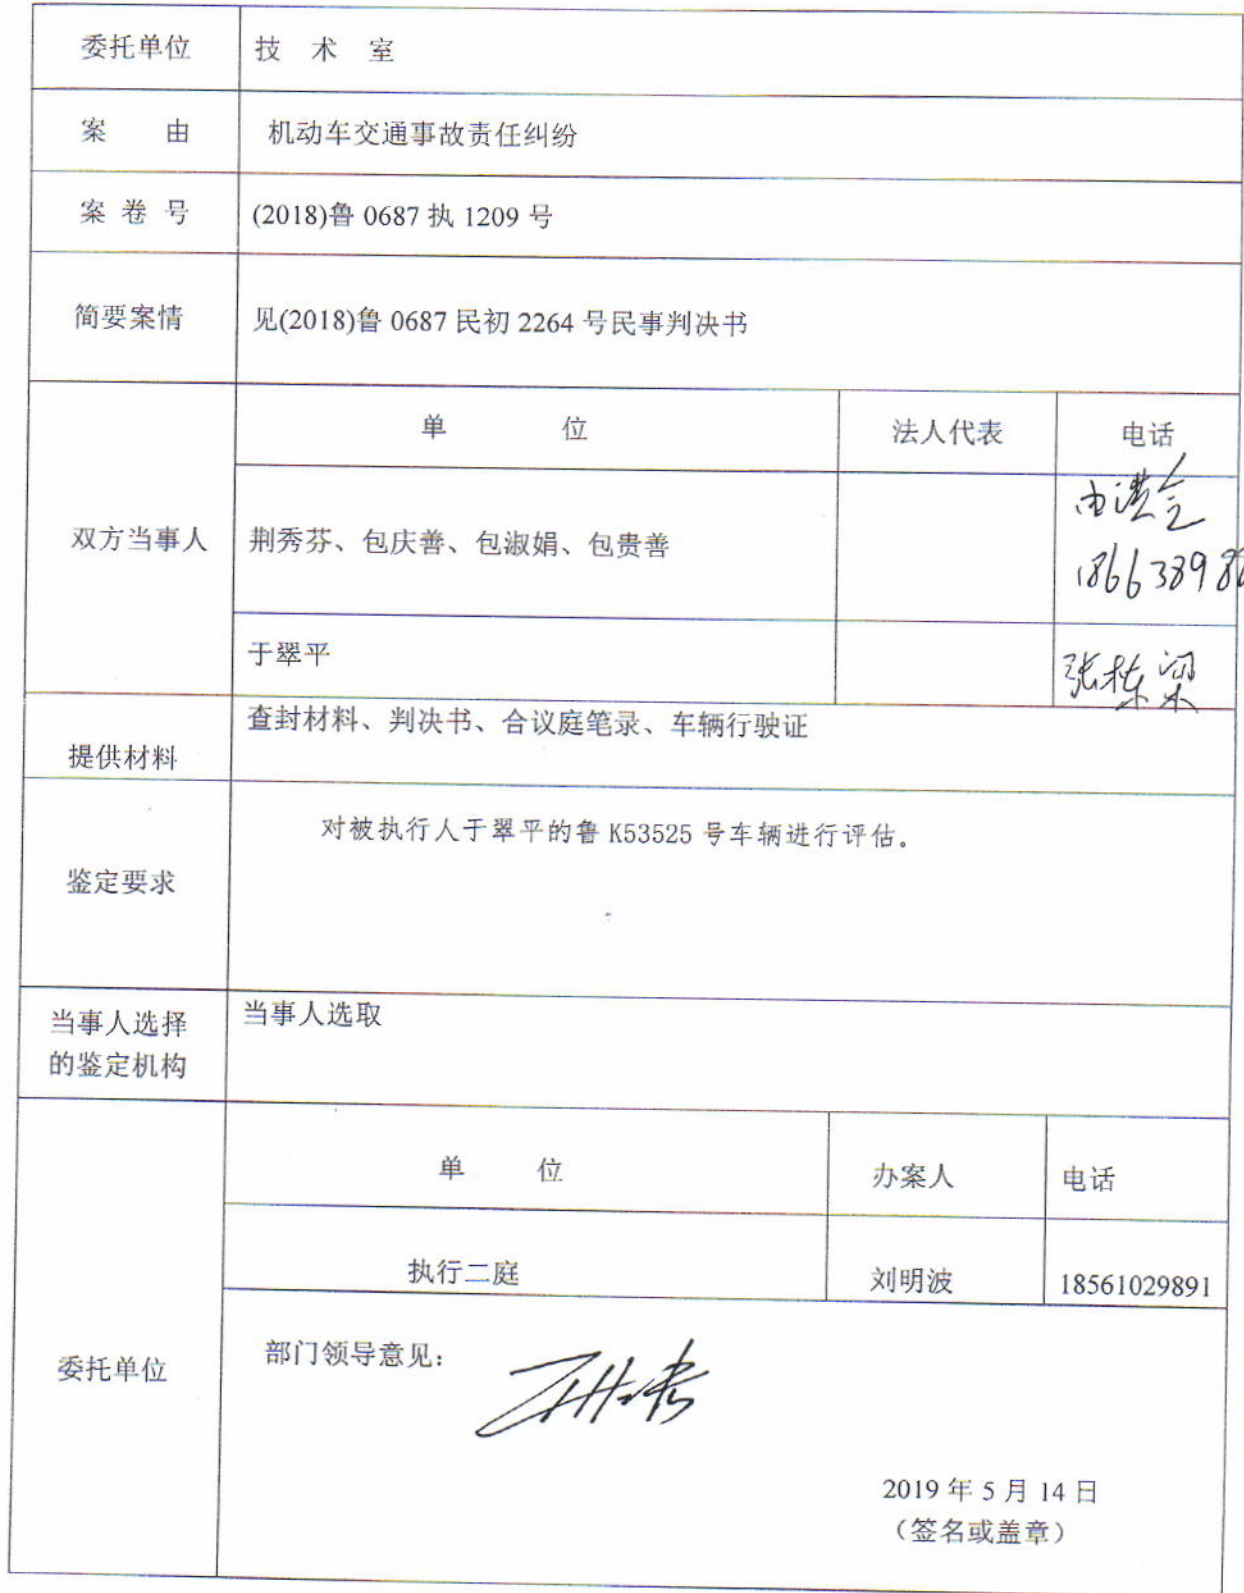 委托单位 技 术 室
案 由 机动车交通事故责任纠纷
案 卷 号 (2018)鲁 0687 执 1209 号
简要案情 见(2018)鲁 0687 民初 2264 号民事判决书
双方当事人 单 位 法人代表 电话
荆秀芬、包庆善、包淑娟、包贵善
18663898
于翠平 张栋梁
提供材料 查封材料、判决书、合议庭笔录、车辆行驶证
鉴定要求 对被执行人于翠平的鲁 K53525 号车辆进行评估。
当事人选择 当事人选取
的鉴定机构
委托单位 单 位 办案人 电话
执行二庭 刘明波 18561029891
部门领导意见：
2019 年 5 月 14 日
（签名或盖章）